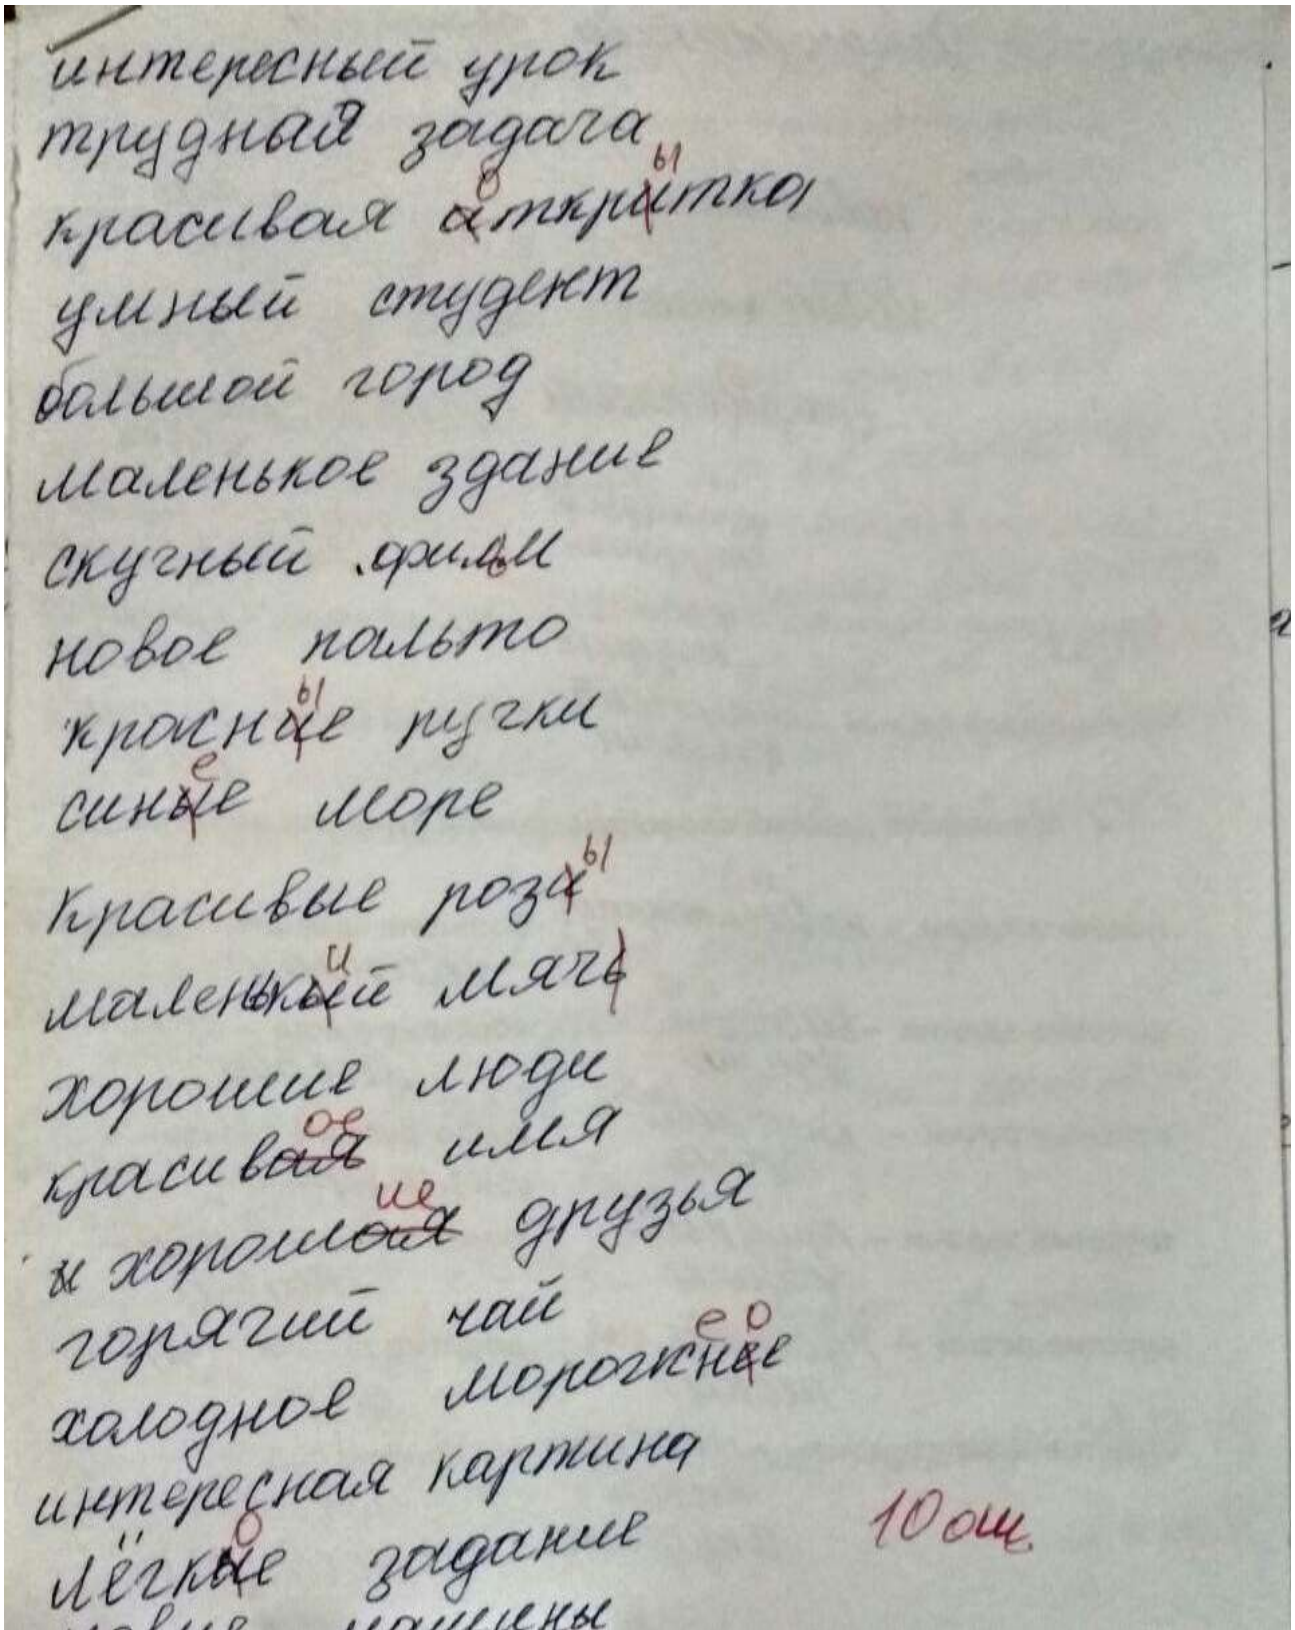 интересный урок
трудная задача
о ы
красивая аткритка
умный студент
большой город
маленькое здание
скучный фильм
новое пальто
ы
красние ручки
е
синые море
красивые рози ы
и
маленькый мячь
хорошие люди
ое
красивая имя
ие
и хорошая друзья
горячий чай
е о
холодное морожние
интересная картина
10 ош.
о
лёгкие задание
машины